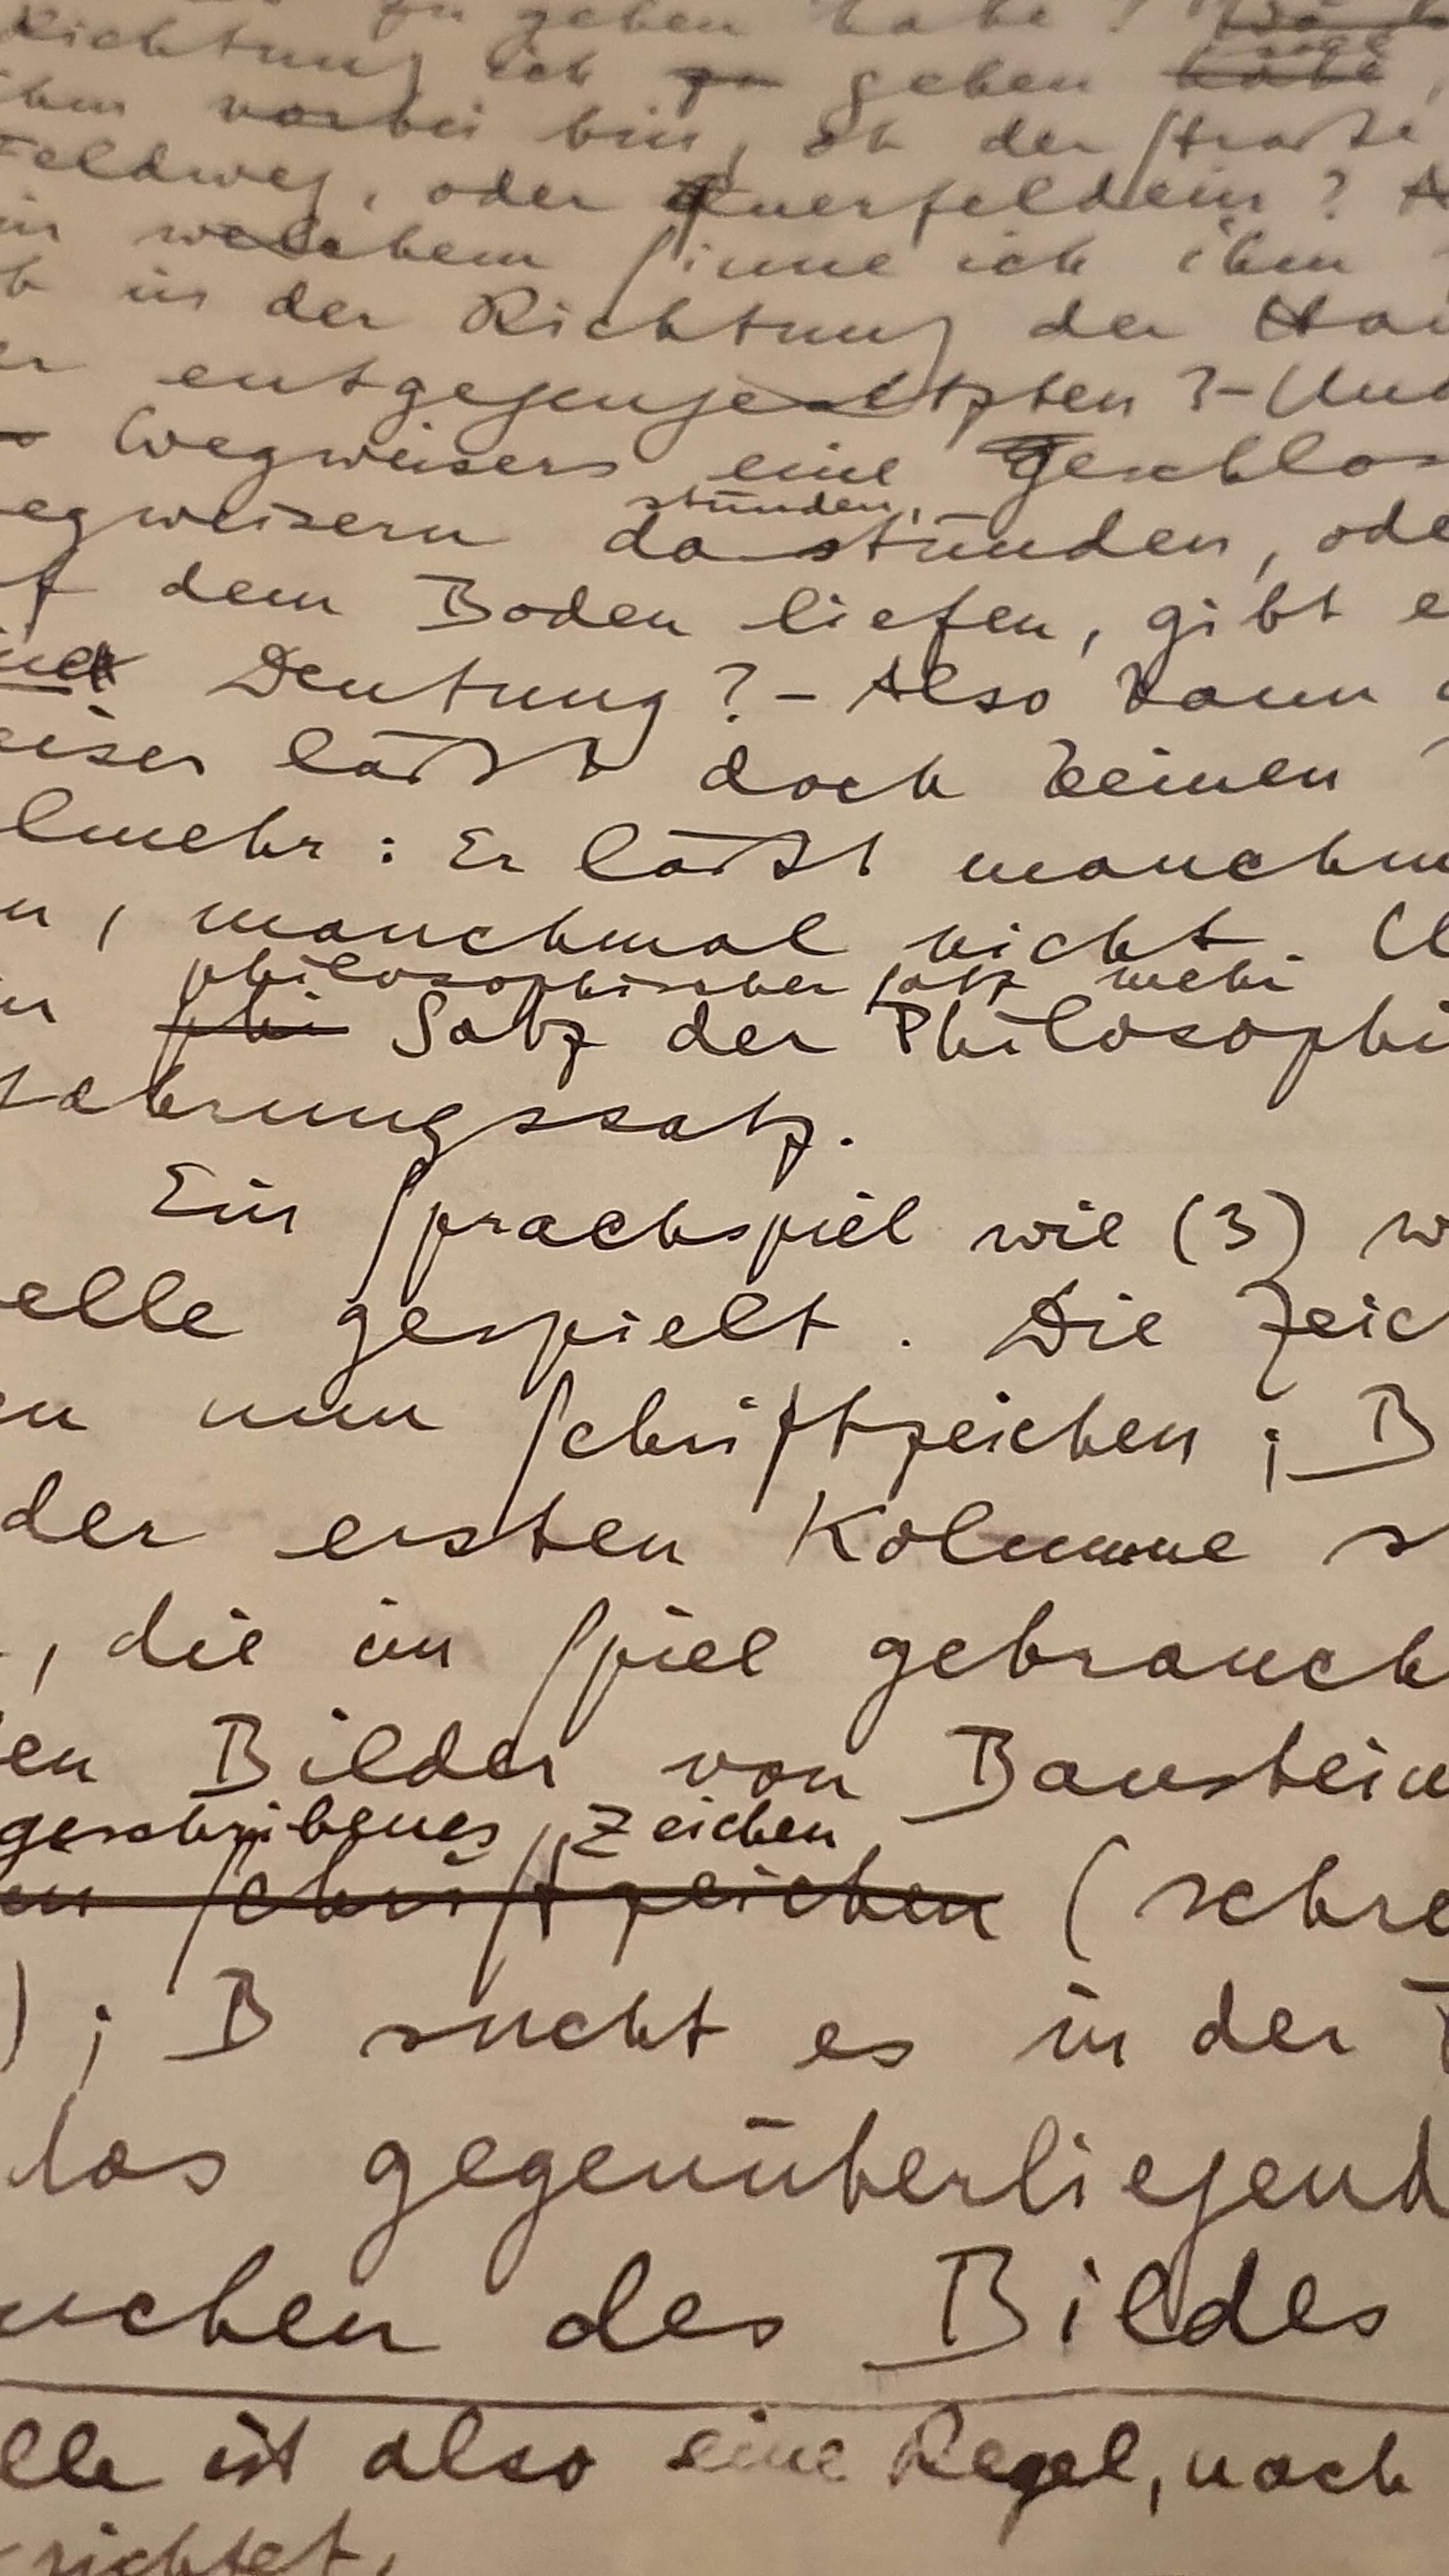 zu geben habe?
Richtung ich zu gehen habe soll,
ihm vorbei bin, ob der Straße
Feldweg, oder querfeldein?
in welchem Sinne ich ihm
b in der Richtung der Han
er entgegengesetzten? – Und
s Wegweisers eine geschlos
stünden,
egweisern dastünden, ode
f dem Boden liefen, gibt e
ine Deutung? – Also kann
eiser läßt doch keinen
lmehr: Er läßt manchm
n, manchmal nicht. U
philosophischer Satz mehr
in phi Satz der Philosophi
fahrungssatz.
Ein Sprachspiel wie (3) w
elle gespielt. Die Zeic
en nun Schriftzeichen; B
der ersten Kolumne s
, die im Spiel gebrauch
en Bilder von Baustein
geschriebenes Zeichen
en Schriftzeichen (schre
); B sucht es in der T
das gegenüberliegend
uchen des Bildes
elle ist also eine Regel, nach
richtet.